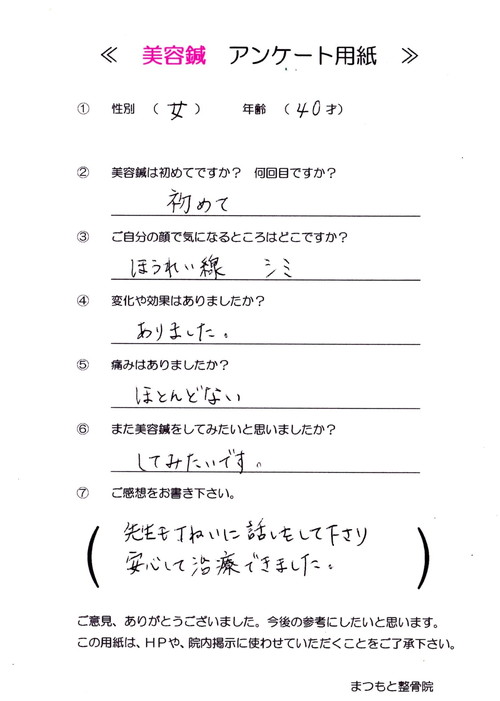 ≪ 美容鍼 アンケート用紙 ≫
① 性別 （ 女 ） 年齢 （ 40才）
② 美容鍼は初めてですか？ 何回目ですか？
初めて
③ ご自分の顔で気になるところはどこですか？
ほうれい線 シミ
④ 変化や効果はありましたか？
ありました。
⑤ 痛みはありましたか？
ほとんどない
⑥ また美容鍼をしてみたいと思いましたか？
してみたいです。
⑦ ご感想をお書き下さい。
先生もていねいに話しをして下さり
安心して治療できました。
ご意見、ありがとうございました。今後の参考にしたいと思います。
この用紙は、ＨＰや、院内掲示に使わせていただくことをご了承下さい。
まつもと整骨院